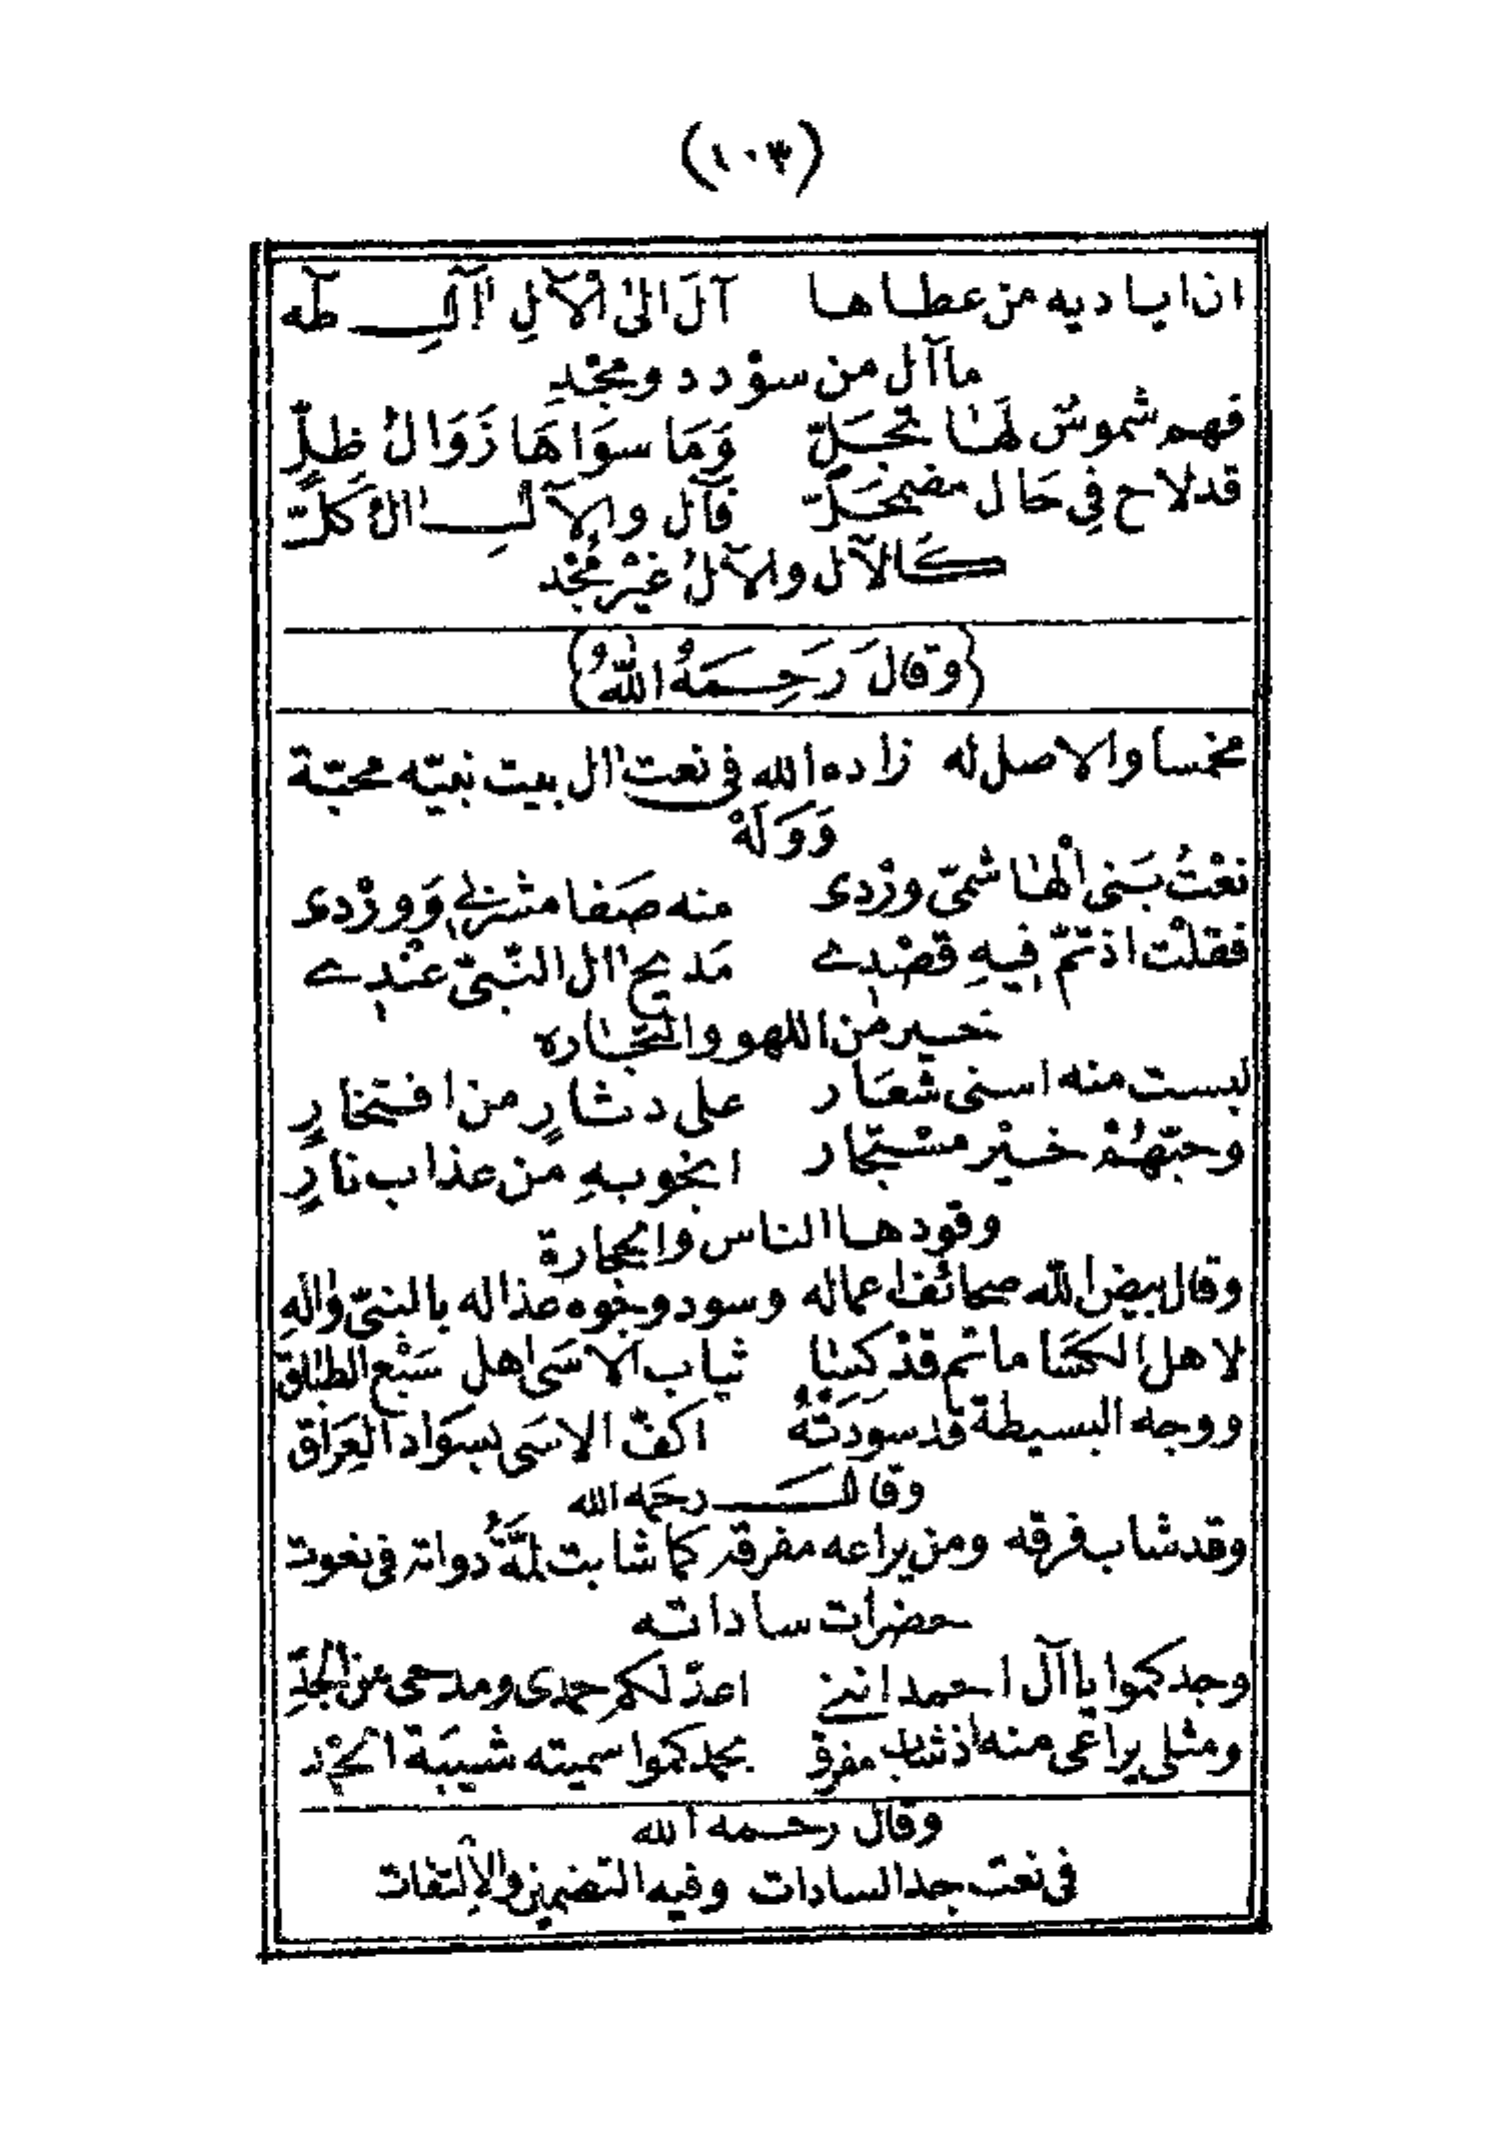 (١٠٣)
ان اياديه من عطاها آلَ الى الْآلِ اآلِ طه
ما آل من سؤدد ومجْدِ
فهم شموسٌ لَهَا تجَلّ وَمَا سوَاهَا زَوَالُ ظِلٍّ
قد لاح فِي حَال مضمحَلّ فآل والآلِ اال كلّ
كالآل والآلُ غيْر مُجْد
(وقالَ رَحِمَهُ اللهُ)
مخمسا والاصل له زاده الله فى نعت اال بيت نبيّه محبّة
وَوَلَهْ
نعْتُ بَنى الْهَاشمىّ ورْدى منه صَفا مشربى وَورْدى
فقلْت اذ تمّ فيهِ قصْدِى مَديح اال النّبىّ عنْدِى
خير من اللهو والتجَاره
لبست منه اسنى شعَار على دثارٍ من افتخارٍ
وحبّهُمْ خيْر مسْتجار انجو بهِ من عذاب نارٍ
وقودها الناس والحجارة
وقال بيض الله صحائف اعماله وسود وجوه عذاله بالنبىّ وااله
لاهل الكسَا ماتم قدْ كسَنا ثياب الاسَى اهل سَبْع الطباق
ووجه البسيطة قد سوّدَتْهُ اكفّ الاسَى بسوَاد العِرَاق
وقال رحمه الله
وقد شاب فرقه ومن يراعه مفرقه كما شابت لمَّةُ دواته فى نعوت
حضرات ساداته
وجدكموا يا آل احمد اننى اعدّ لكم حمدى ومدحى من الجدِّ
ومثلى يراعى منه اذ شاب مفرق بحمدكموا سميته شيبَة الحمْد
وقال رحمه الله
فى نعت جد السادات وفيه التضمين والالتفات